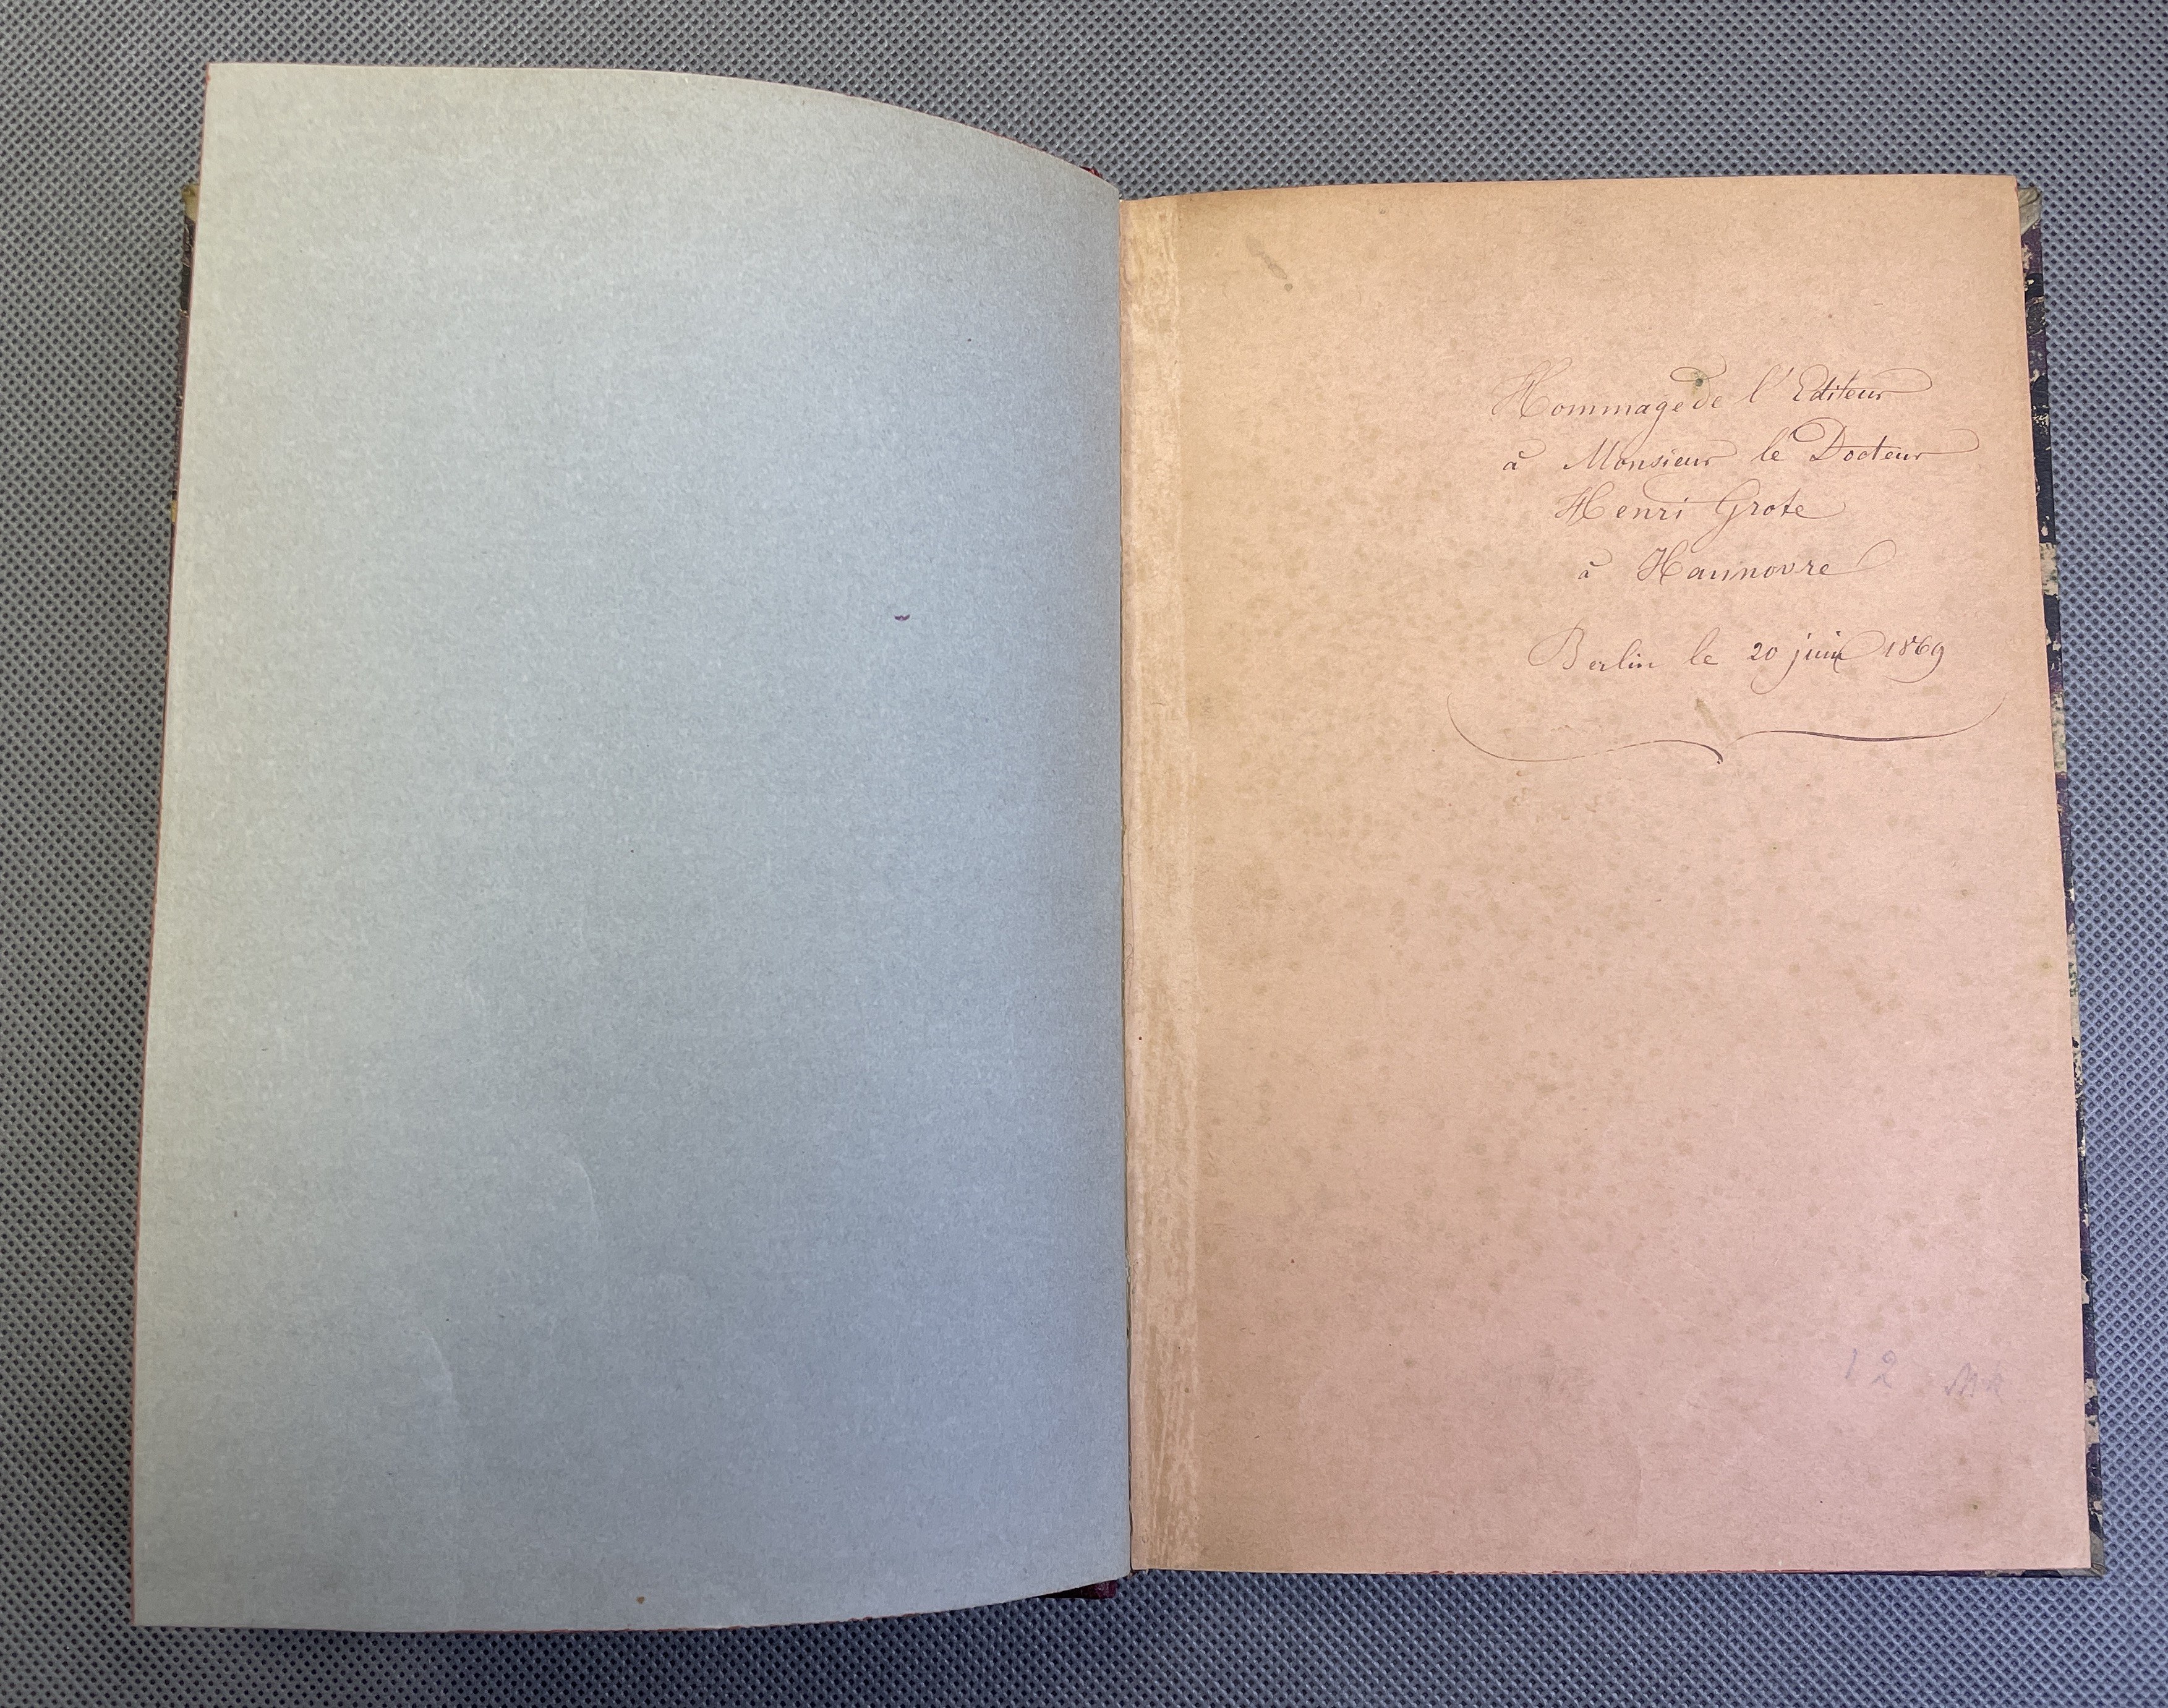 Hommage de l'Editeur
à Monsieur le Docteur
Henri Grote
à Hannovre
Berlin le 20 juin 1869
12